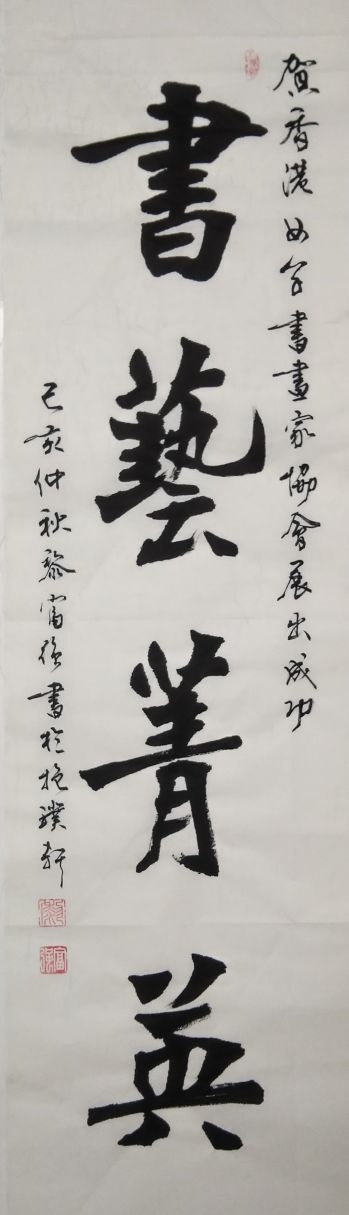 賀香港女子書畫家協會展出成功
書藝菁英
己亥仲秋黎富強書於抱璞軒